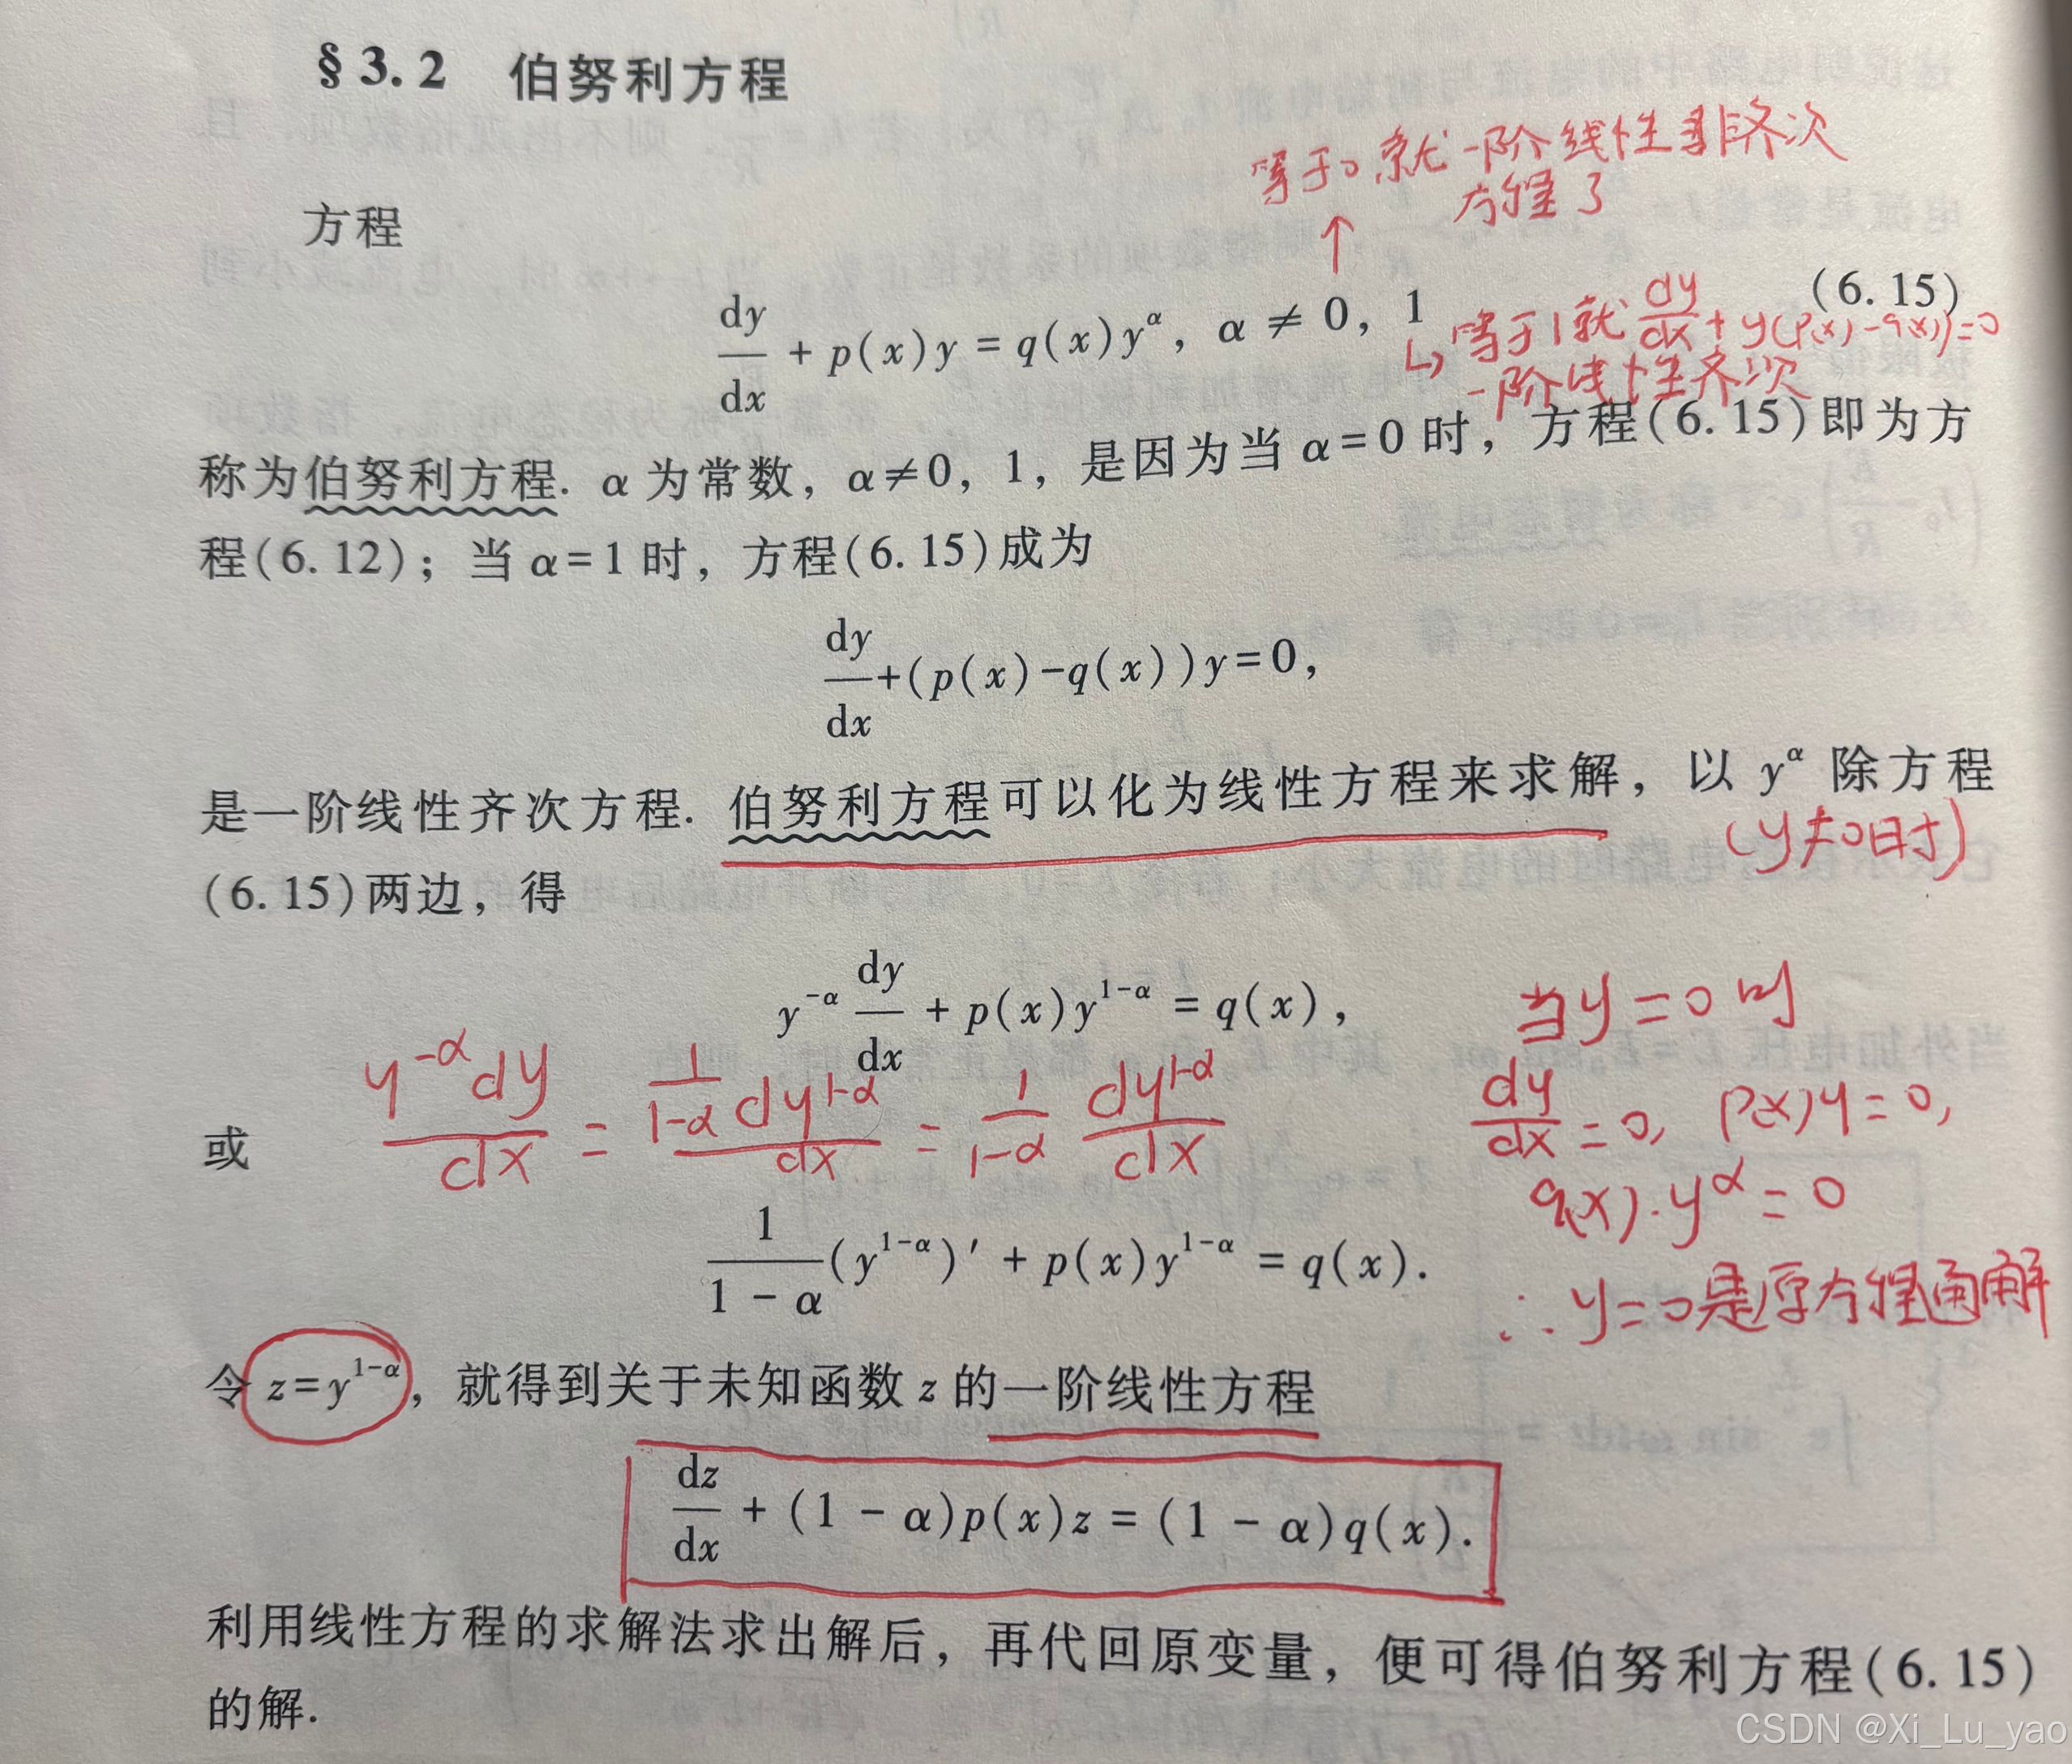 §3.2 伯努利方程
等于0就一阶线性非齐次
方程了
方程
↑
dy/dx + p(x)y = q(x)y^α, α ≠ 0, 1 (6.15)
↳ 等于1就 dy/dx + y(p(x)-q(x))=0
一阶线性齐次
称为伯努利方程. α 为常数, α≠0, 1, 是因为当 α=0 时, 方程(6.15)即为方
程(6.12); 当 α=1 时, 方程(6.15)成为
dy/dx+(p(x)-q(x))y=0,
是一阶线性齐次方程. 伯努利方程可以化为线性方程来求解, 以 y^α 除方程
(y≠0时)
(6.15)两边, 得
y^{-α} dy/dx + p(x)y^{1-α} = q(x),
当y=0时
dy/dx=0, p(x)y=0,
q(x)·y^α=0
∴y=0是原方程通解
或
y^{-α}dy/dx = 1/(1-α) dy^{1-α}/dx = 1/(1-α) dy^{1-α}/dx
1/(1-α)(y^{1-α})′ + p(x)y^{1-α} = q(x).
令 z=y^{1-α}, 就得到关于未知函数 z 的一阶线性方程
dz/dx + (1-α)p(x)z = (1-α)q(x).
利用线性方程的求解法求出解后, 再代回原变量, 便可得伯努利方程(6.15)
的解.
CSDN @Xi_Lu_yao